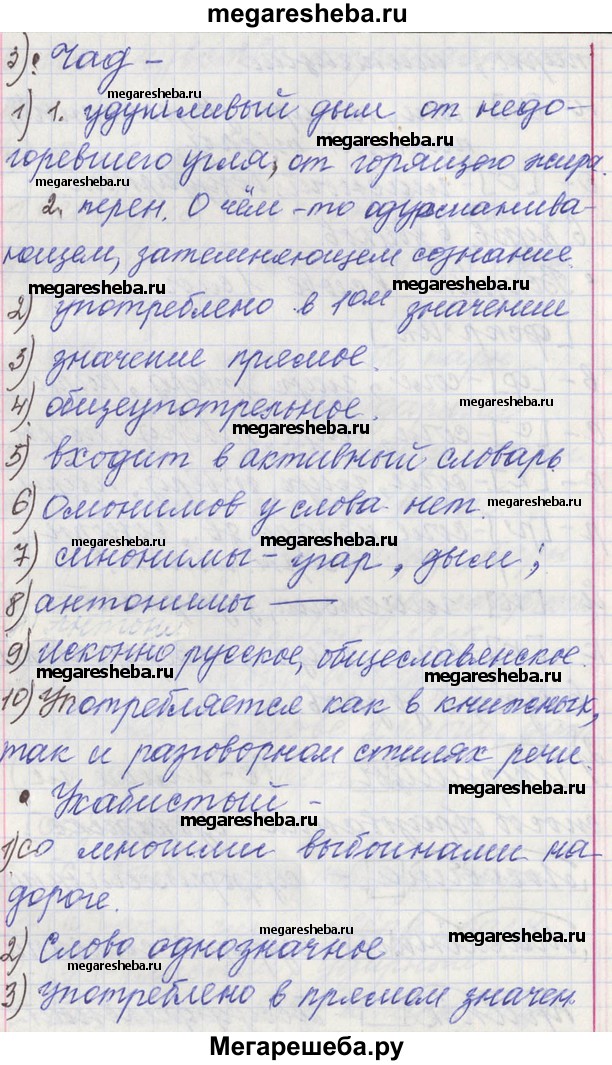 megaresheba.ru
3) • Чад –
megaresheba.ru
1) 1. удушливый дым от недо-
megaresheba.ru
горевшего угля, от горящего жира.
megaresheba.ru
2. перен. О чём-то одурманива-
ющем, затемняющем сознание
megaresheba.ru megaresheba.ru
2) употреблено в 1ом значении
3) значение прямое.
megaresheba.ru
4) общеупотрельное.
megaresheba.ru
5) входит в активный словарь
megaresheba.ru
6) Омонимов у слова нет.
megaresheba.ru megaresheba.ru
7) синонимы – угар, дым;
megaresheba.ru
8) антонимы —
megaresheba.ru
9) исконно русское, общеславянское.
megaresheba.ru megaresheba.ru
10) Употребляется как в книжных,
так и разговорном стилях речи.
megaresheba.ru
• Ухабистый –
megaresheba.ru
1) со многими выбоинами на
дороге.
megaresheba.ru
2) Слово однозначное
megaresheba.ru
3) употреблено в прямом значен.
megaresheba.ru
Мегарешеба.ру